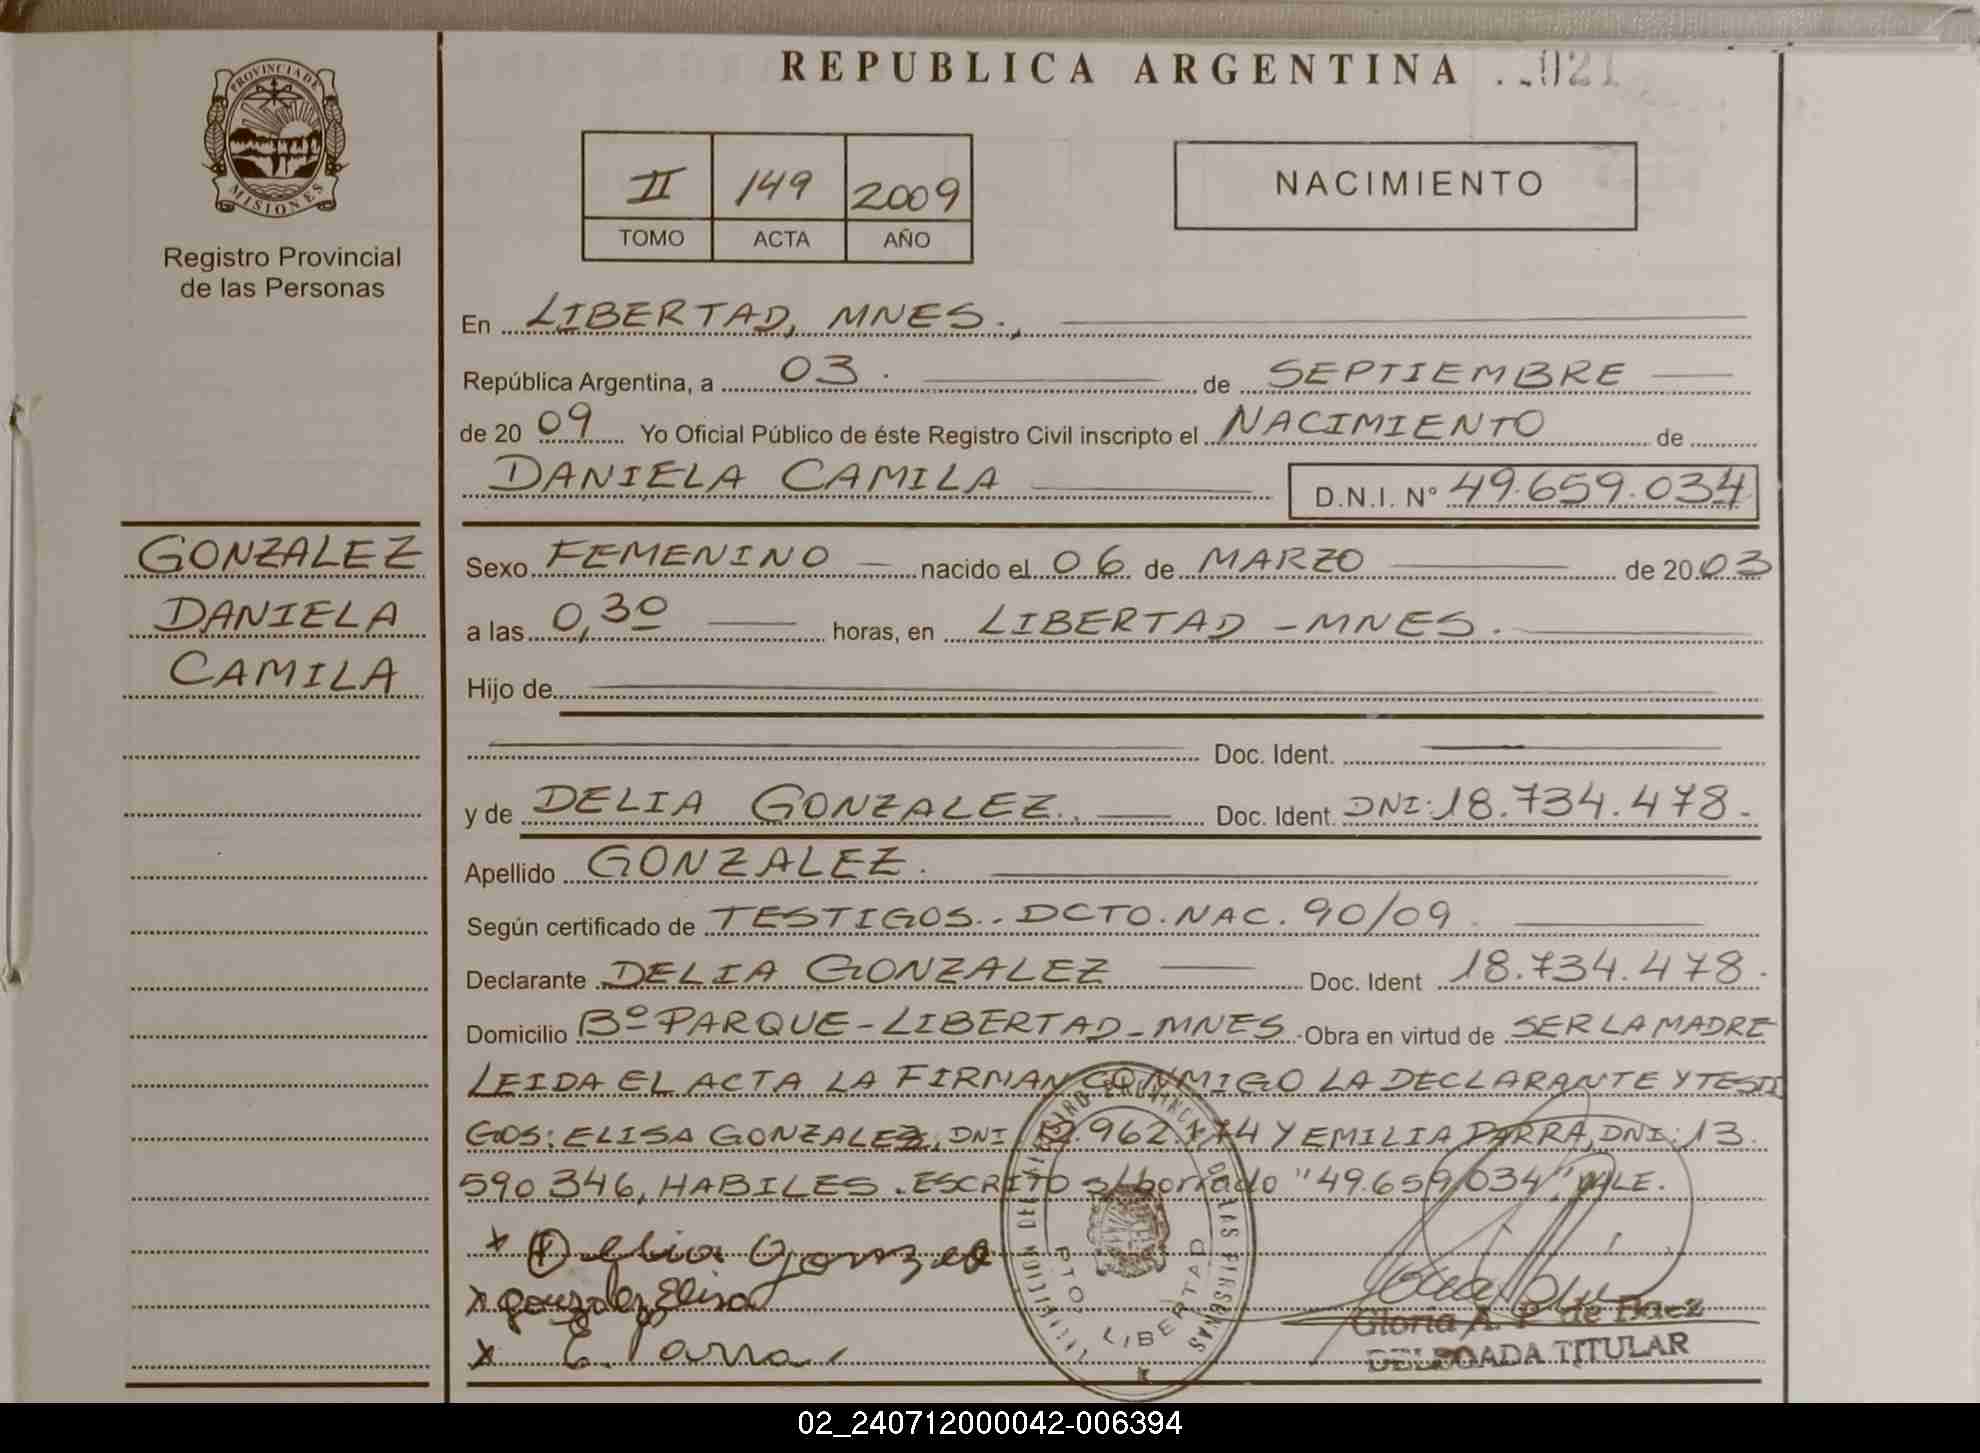 REPUBLICA ARGENTINA ..021
PROVINCIA DE
MISIONES
Registro Provincial
de las Personas
II 149 2009
TOMO ACTA AÑO
NACIMIENTO
En LIBERTAD, MNES.,
República Argentina, a 03. de SEPTIEMBRE
de 2009 Yo Oficial Público de éste Registro Civil inscripto el NACIMIENTO de
DANIELA CAMILA D.N.I. N° 49.659.034
GONZALEZ
DANIELA
CAMILA
Sexo FEMENINO nacido el 06 de MARZO de 2003
a las 0,30 horas, en LIBERTAD - MNES.
Hijo de
Doc. Ident.
y de DELIA GONZALEZ. Doc. Ident. DNI: 18.734.478.
Apellido GONZALEZ.
Según certificado de TESTIGOS.. DCTO. NAC. 90/09.
Declarante DELIA GONZALEZ Doc. Ident 18.734.478.
Domicilio Bº PARQUE - LIBERTAD - MNES. Obra en virtud de SER LA MADRE
LEIDA EL ACTA LA FIRMAN CONMIGO LA DECLARANTE Y TESTI
GOS: ELISA GONZALEZ, DNI Y EMILIA PARRA, DNI: 13.
590346, HABILES. ESCRITO s/borrado "49.659.034" VALE.
x Delia Gonzalez
x gonzalez Elisa
x E. Parra
PTO. LIBERTAD
Gloria A. P. de Baez
DELEGADA TITULAR
02_240712000042-006394